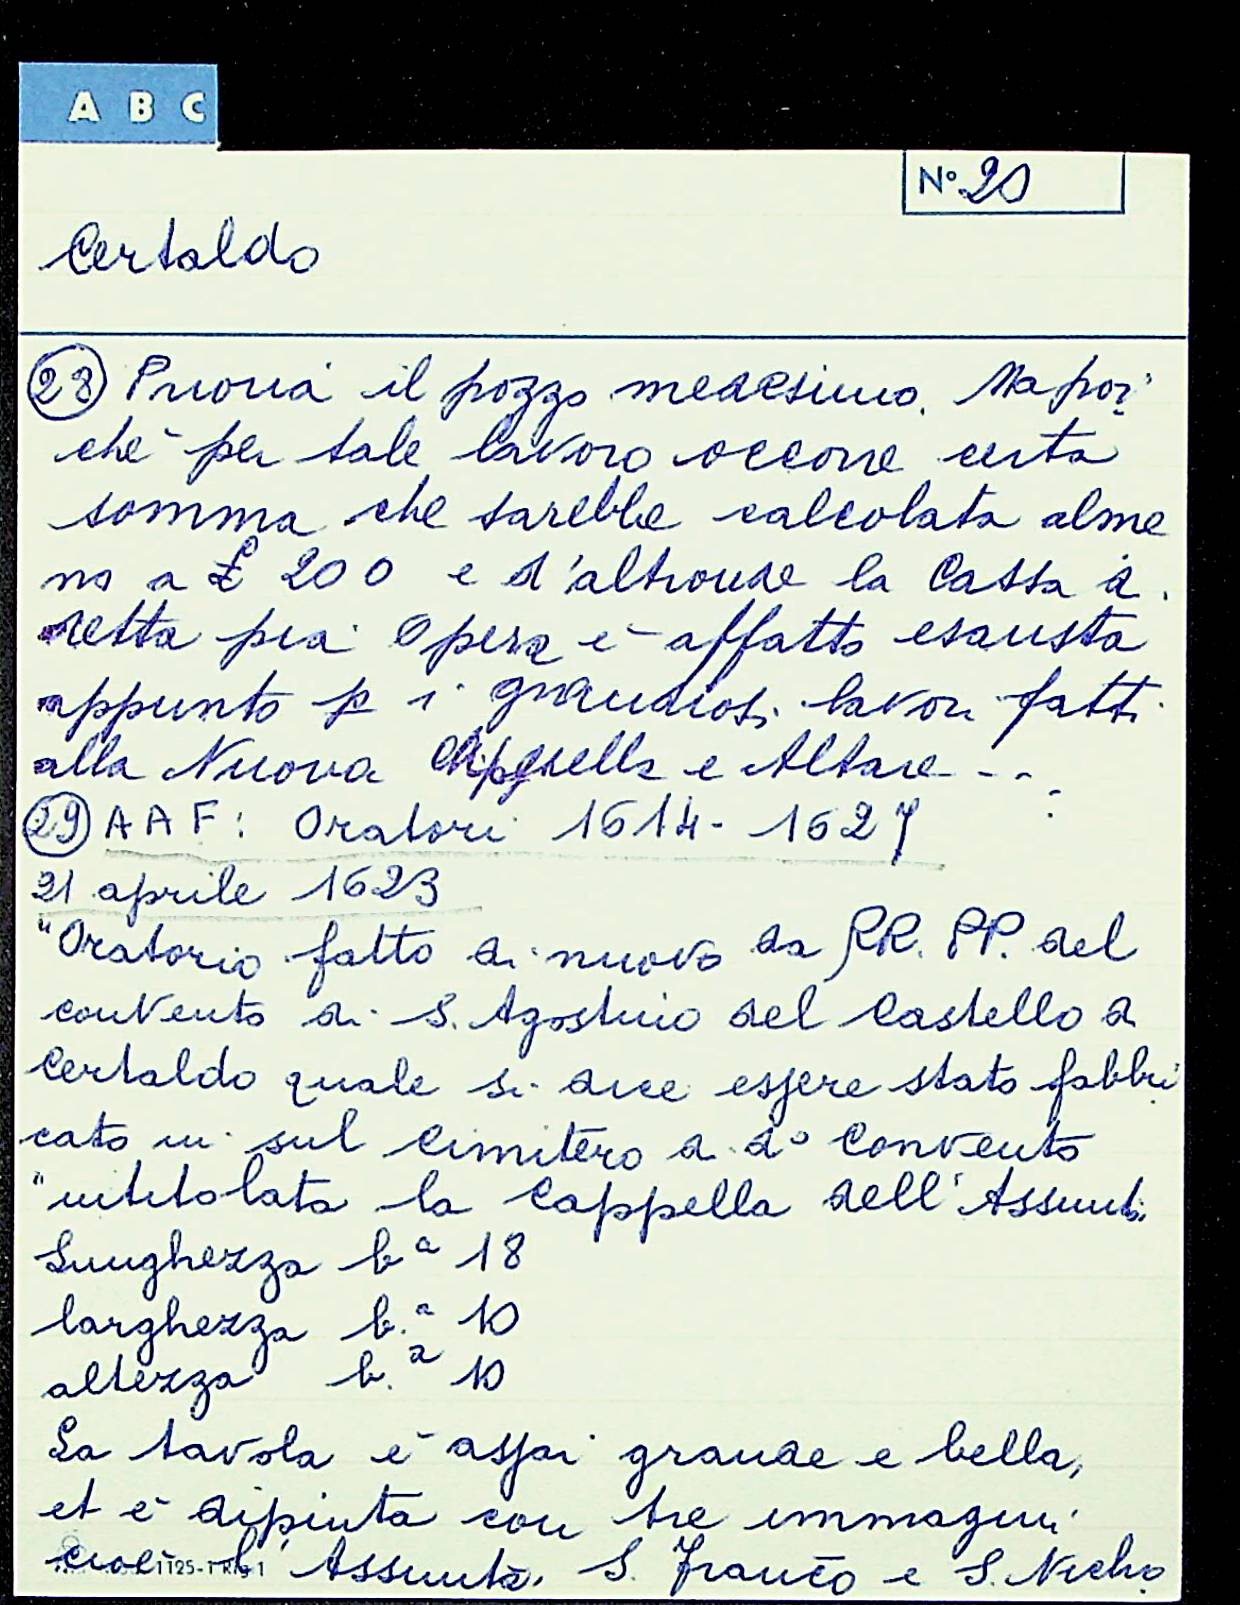 A B C
Nº 20
Certaldo
(28) Pruova il pozzo medesimo. Ma poi
chè per tale lavoro occorre certa
somma che sarebbe calcolata alme
no a £ 200 e d'altronde la Cassa d.
detta pia Opera è affatto esausta
appunto p i grandiosi lavori fatti
alla Nuova Cappella e Altare - - .
(29) A A F: Oratori 1614 - 1627
21 aprile 1623
"Oratorio fatto di nuovo da RR. PP. del
convento di S. Agostino del Castello d
Certaldo quale si dice essere stato fabbri
cato in sul Cimitero d dº Convento
"intitolata la Cappella dell'Assunt.
Lunghezza b.ª 18
larghezza b.ª 10
altezza b.ª 10
La tavola è assai grande e bella,
et è dipinta con tre immagini
cioè l'Assunta, S. Franco e S. Nicho
1125-1 Rig 1